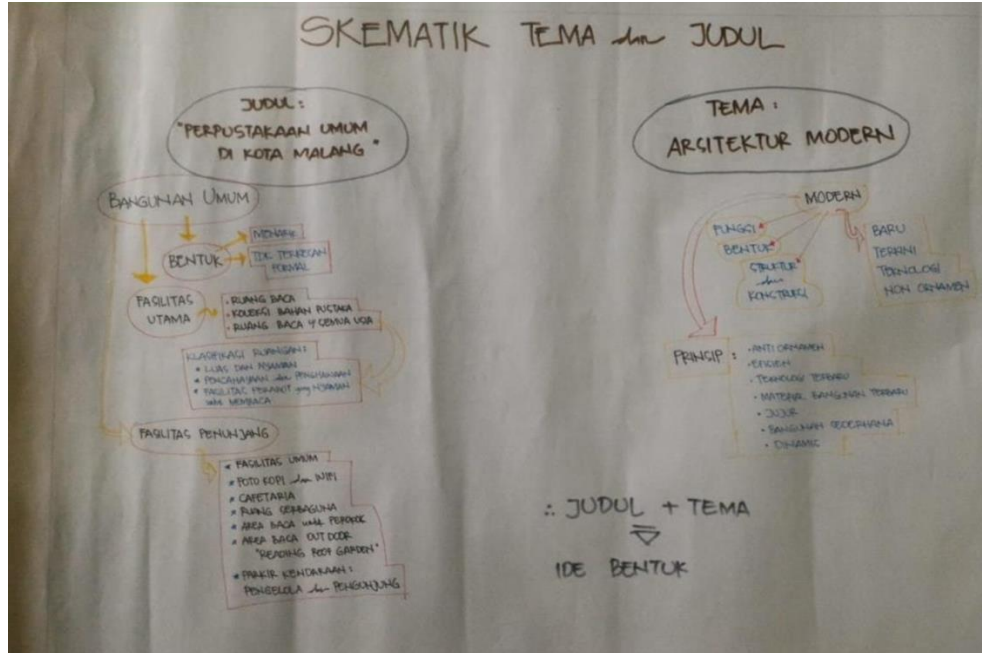 SKEMATIK TEMA dan JUDUL
JUDUL :
"PERPUSTAKAAN UMUM
DI KOTA MALANG"
BANGUNAN UMUM
BENTUK
MENARIK
TDK TERKESAN
FORMAL
FASILITAS
UTAMA
• RUANG BACA
• KOLEKSI BAHAN PUSTAKA
• RUANG BACA SEMUA USIA
KLASIFIKASI RUANGAN :
• LUAS DAN NYAMAN
• PENCAHAYAAN dan PENGHAWAAN
• FASILITAS PERABOT yang NYAMAN
MEMBACA
FASILITAS PENUNJANG
• FASILITAS UMUM
• FOTO KOPI dan WIFI
• CAFETARIA
• RUANG SERBAGUNA
• AREA BACA untuk PEROKOK
• AREA BACA OUTDOOR
"READING ROOF GARDEN"
• PARKIR KENDARAAN :
PENGELOLA dan PENGUNJUNG
TEMA :
ARSITEKTUR MODERN
MODERN
FUNGSI
BENTUK
STRUKTUR
dan
KONSTRUKSI
BARU
TERKINI
TEKNOLOGI
NON ORNAMEN
PRINSIP :
• ANTI ORNAMEN
• EFISIEN
• TEKNOLOGI TERBARU
• MATERIAL BANGUNAN TERBARU
• JUJUR
• BANGUNAN SEDERHANA
• DINAMIC
∴ JUDUL + TEMA
IDE BENTUK